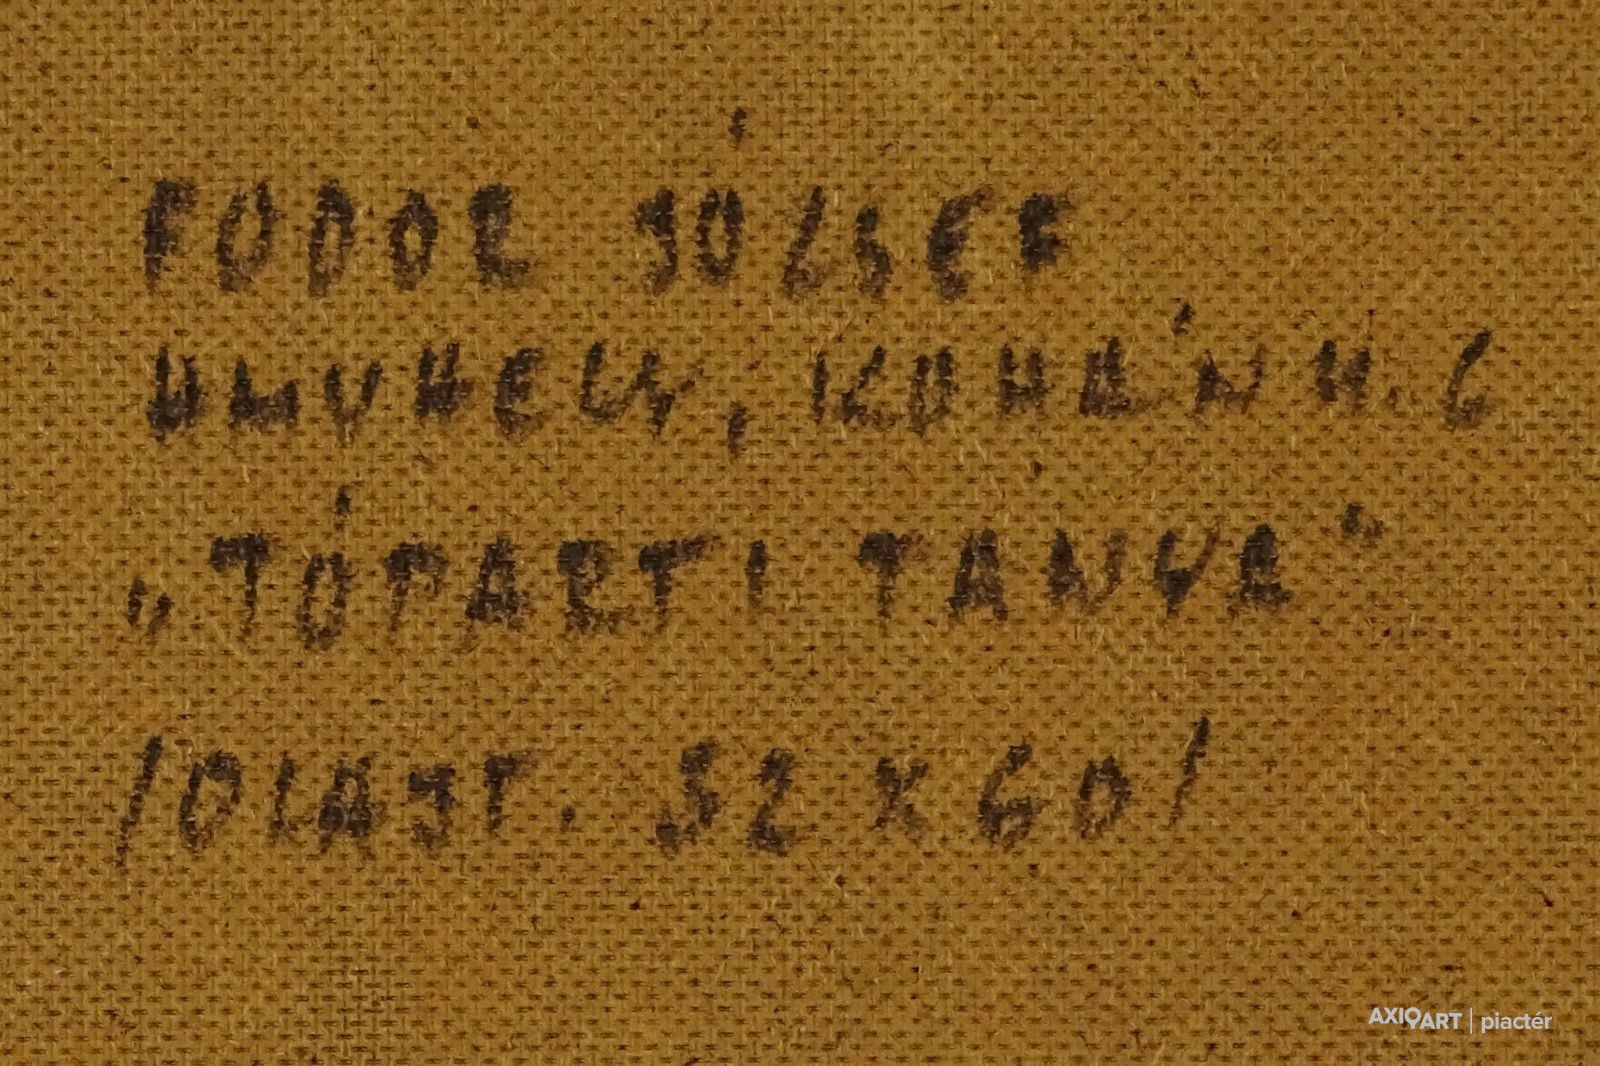 FODOR JÓZSEF
HMVHELY, KOHÁN U. 6
„TÓPARTI TANYA"
/OLAJT. 52 x 60/
AXIOART | piactér